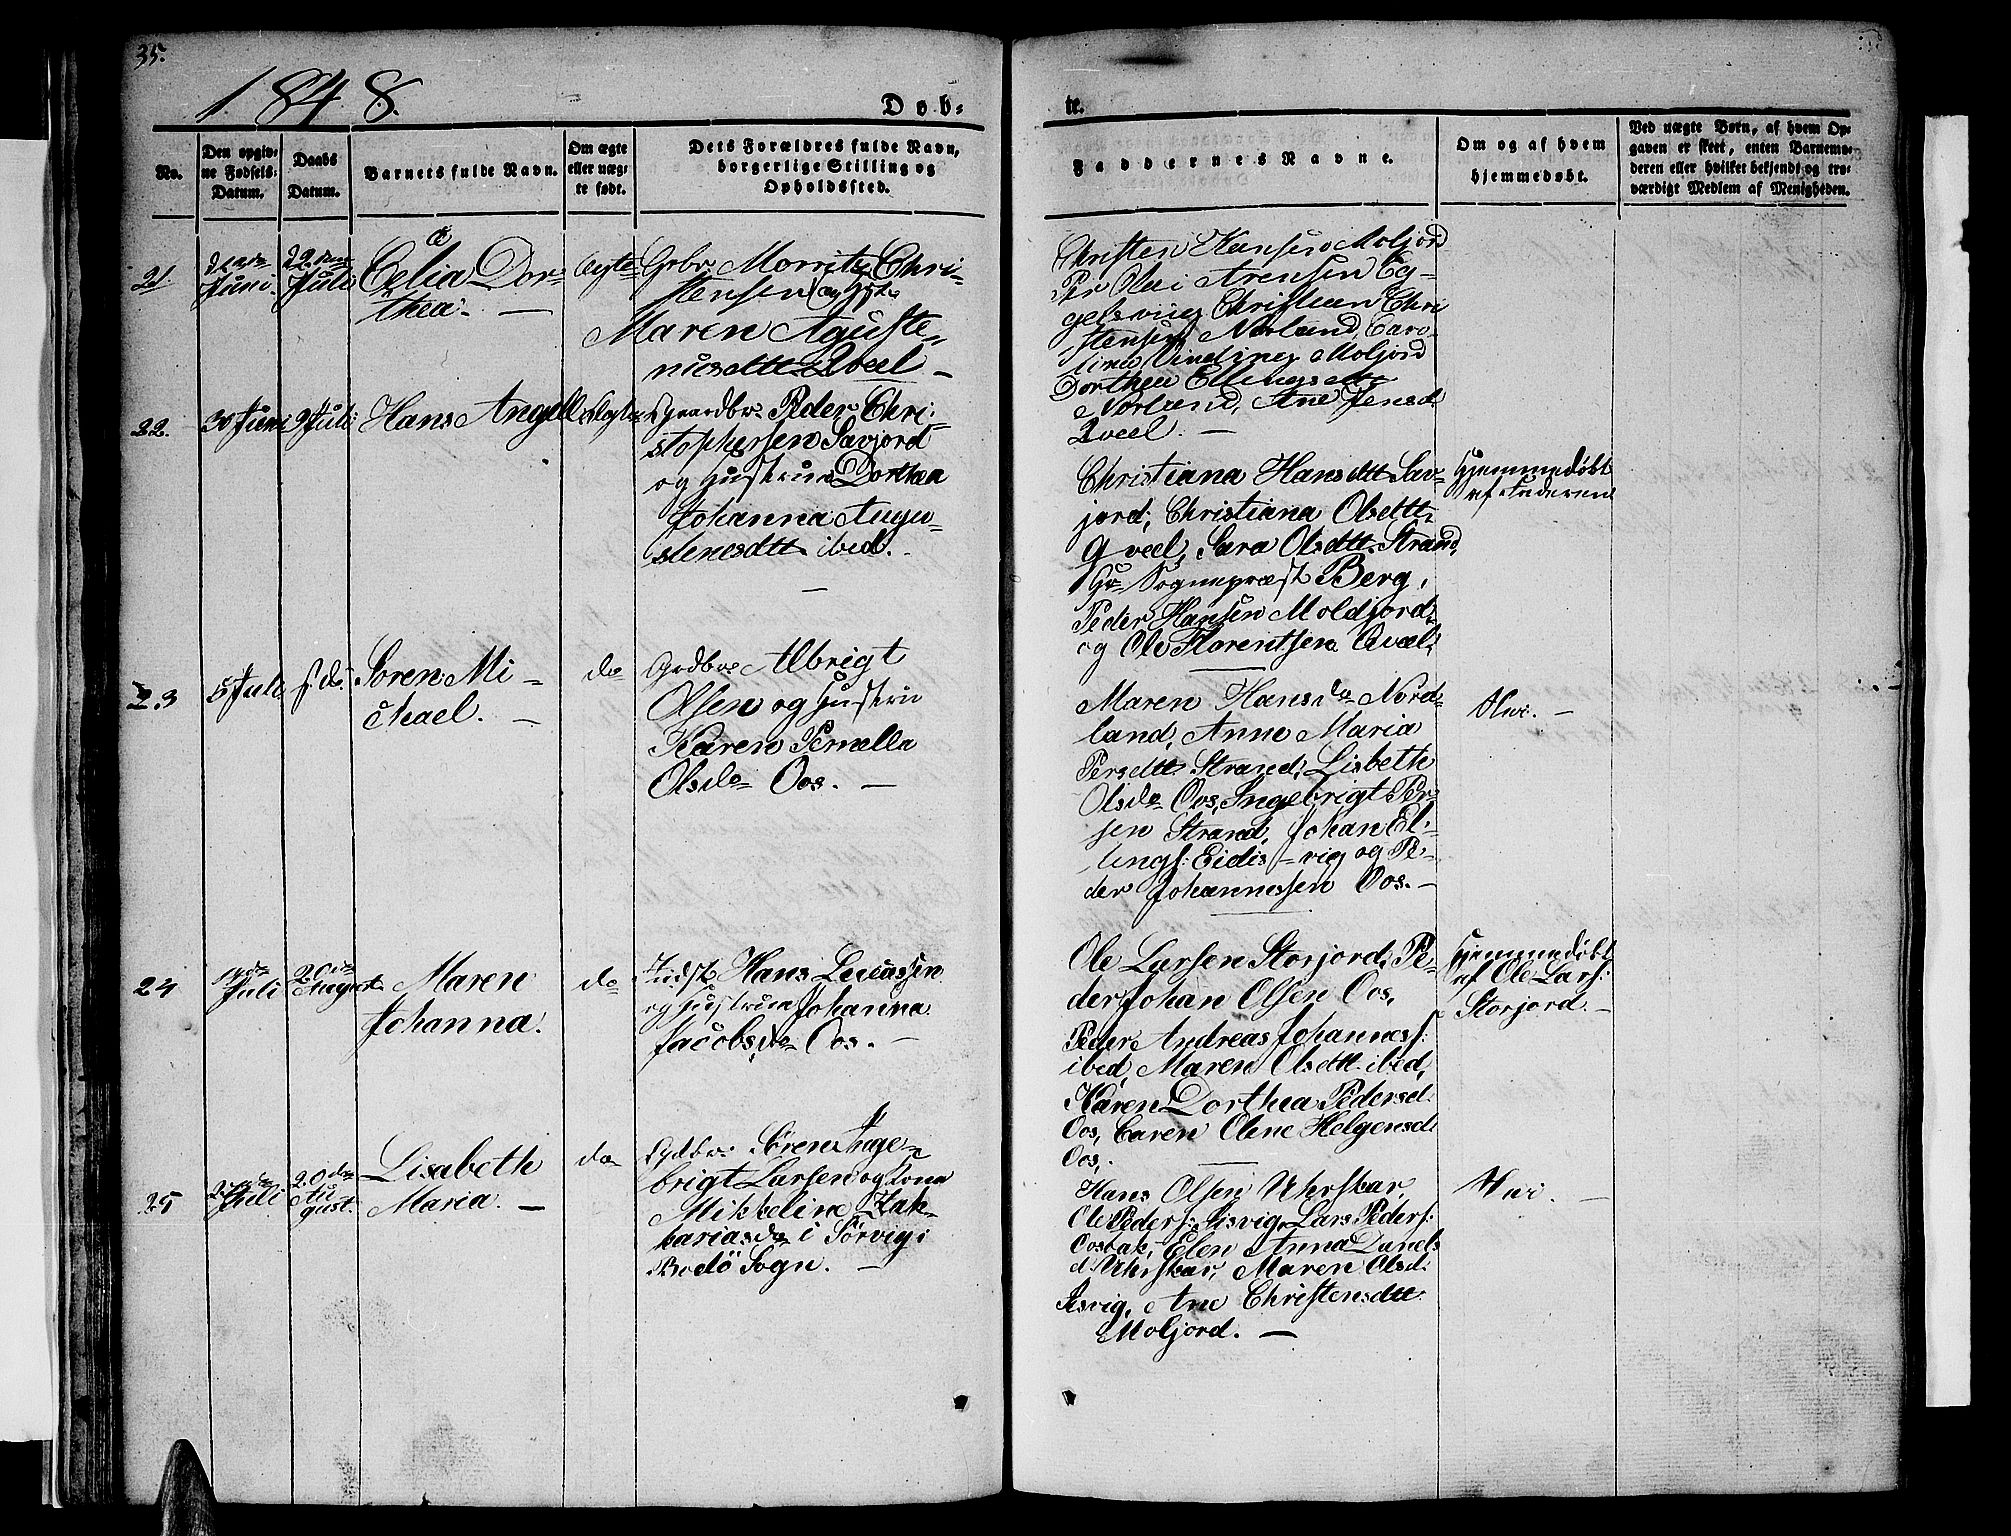 35.
1848.
Døb=
te.
No.
Den opgiv=
ne Fødsels=
Datum.
Daabs
Datum.
Barnets fulde Navn.
Om ægte
eller uæg=
te født.
Dets Forældres fulde Navn,
borgerlige Stilling og
Opholdssted.
Faddernes Navne.
Om og af hvem
hjemmedøbt.
Ved uægte Børn, af hvem Op=
gaven er skeet, enten Barnemo=
deren eller hvilket bekjendt og tro=
værdigt Medlem af Menigheden.
21.
Juni
22
Juli
Celia Dor=
thea. —
Ægte
Grbr Morritz Chri=
stensen og Hst
Maren Aguste=
nusdtt Qveel —
Christen Hansen Moljord
Per Olai Arensen Eg=
gesvig Christian Chri
stensen Norland, Caro=
lina Vinding Moljord
Dorthea Ellingsdtt
Norland, Ane Jensd.
Qveel. —
22.
30 Juni
9 Juli
Hans Angell
Ægte
Gaardbr. Peder Chri=
stophersen Savjord
og Hustrue Dorthea
Johanna Augu=
stenesdtt ibed. —
Christiana Hansdtt Sav=
jord, Christiana Olsdtt
Qveel, Sara Olsdtt Strand,
Hr Sognepræst Berg,
Peder Hansen Moldjord
og Ole Florentsen Qvæl.
Hjemmedøbt
af Faderen
23
5 Juli
s. d.
Soren Mi=
chael. —
do
Grdbr Albrigt
Olsen og Hustru
Karen Pernella
Olsdr Oos. —
Maren Hansdr Nord=
land, Anne Maria
Persdtt Strand, Lisbeth
Olsdr Oos, Ingebrigt Per=
sen Strand, Johan El=
lings: Eidis=vig og Pe=
der Johannessen Oos. —
Nei. —
24
Juli
20de
August
Maren
Johanna.
do
Indst Hans Lucassen
og Hustrue Johanna
Jacobsdr Oos. —
Ole Larsen Storjord, Pe=
der Johan Olsen Oos,
Peder Andreas Johanness:
ibed, Maren Olsdtt ibed,
Karen Dorthea Pedersd.
Oos, Caren Oline Helgensd.
Oos,.
Hjemmedøbt
af Ole Lars:
Storjord. —
25
Juli
20de
Au
gust.
Lisabeth
Maria. —
do
Gdbr. Søren Inge=
brigt Larsen og Kone
Mikkeline Zak=
kariasdr i Sørvig i
Bodö Sogn. —
Hans Olsen Uhrskar,
Ole Peders: Sisvig, Lars Peders:
Oosbak, Elen Anna Danels
d. Uhrskar, Maren Olsd.
Sisvig, Ane Christensdtt
Moljord. —
Nei. —